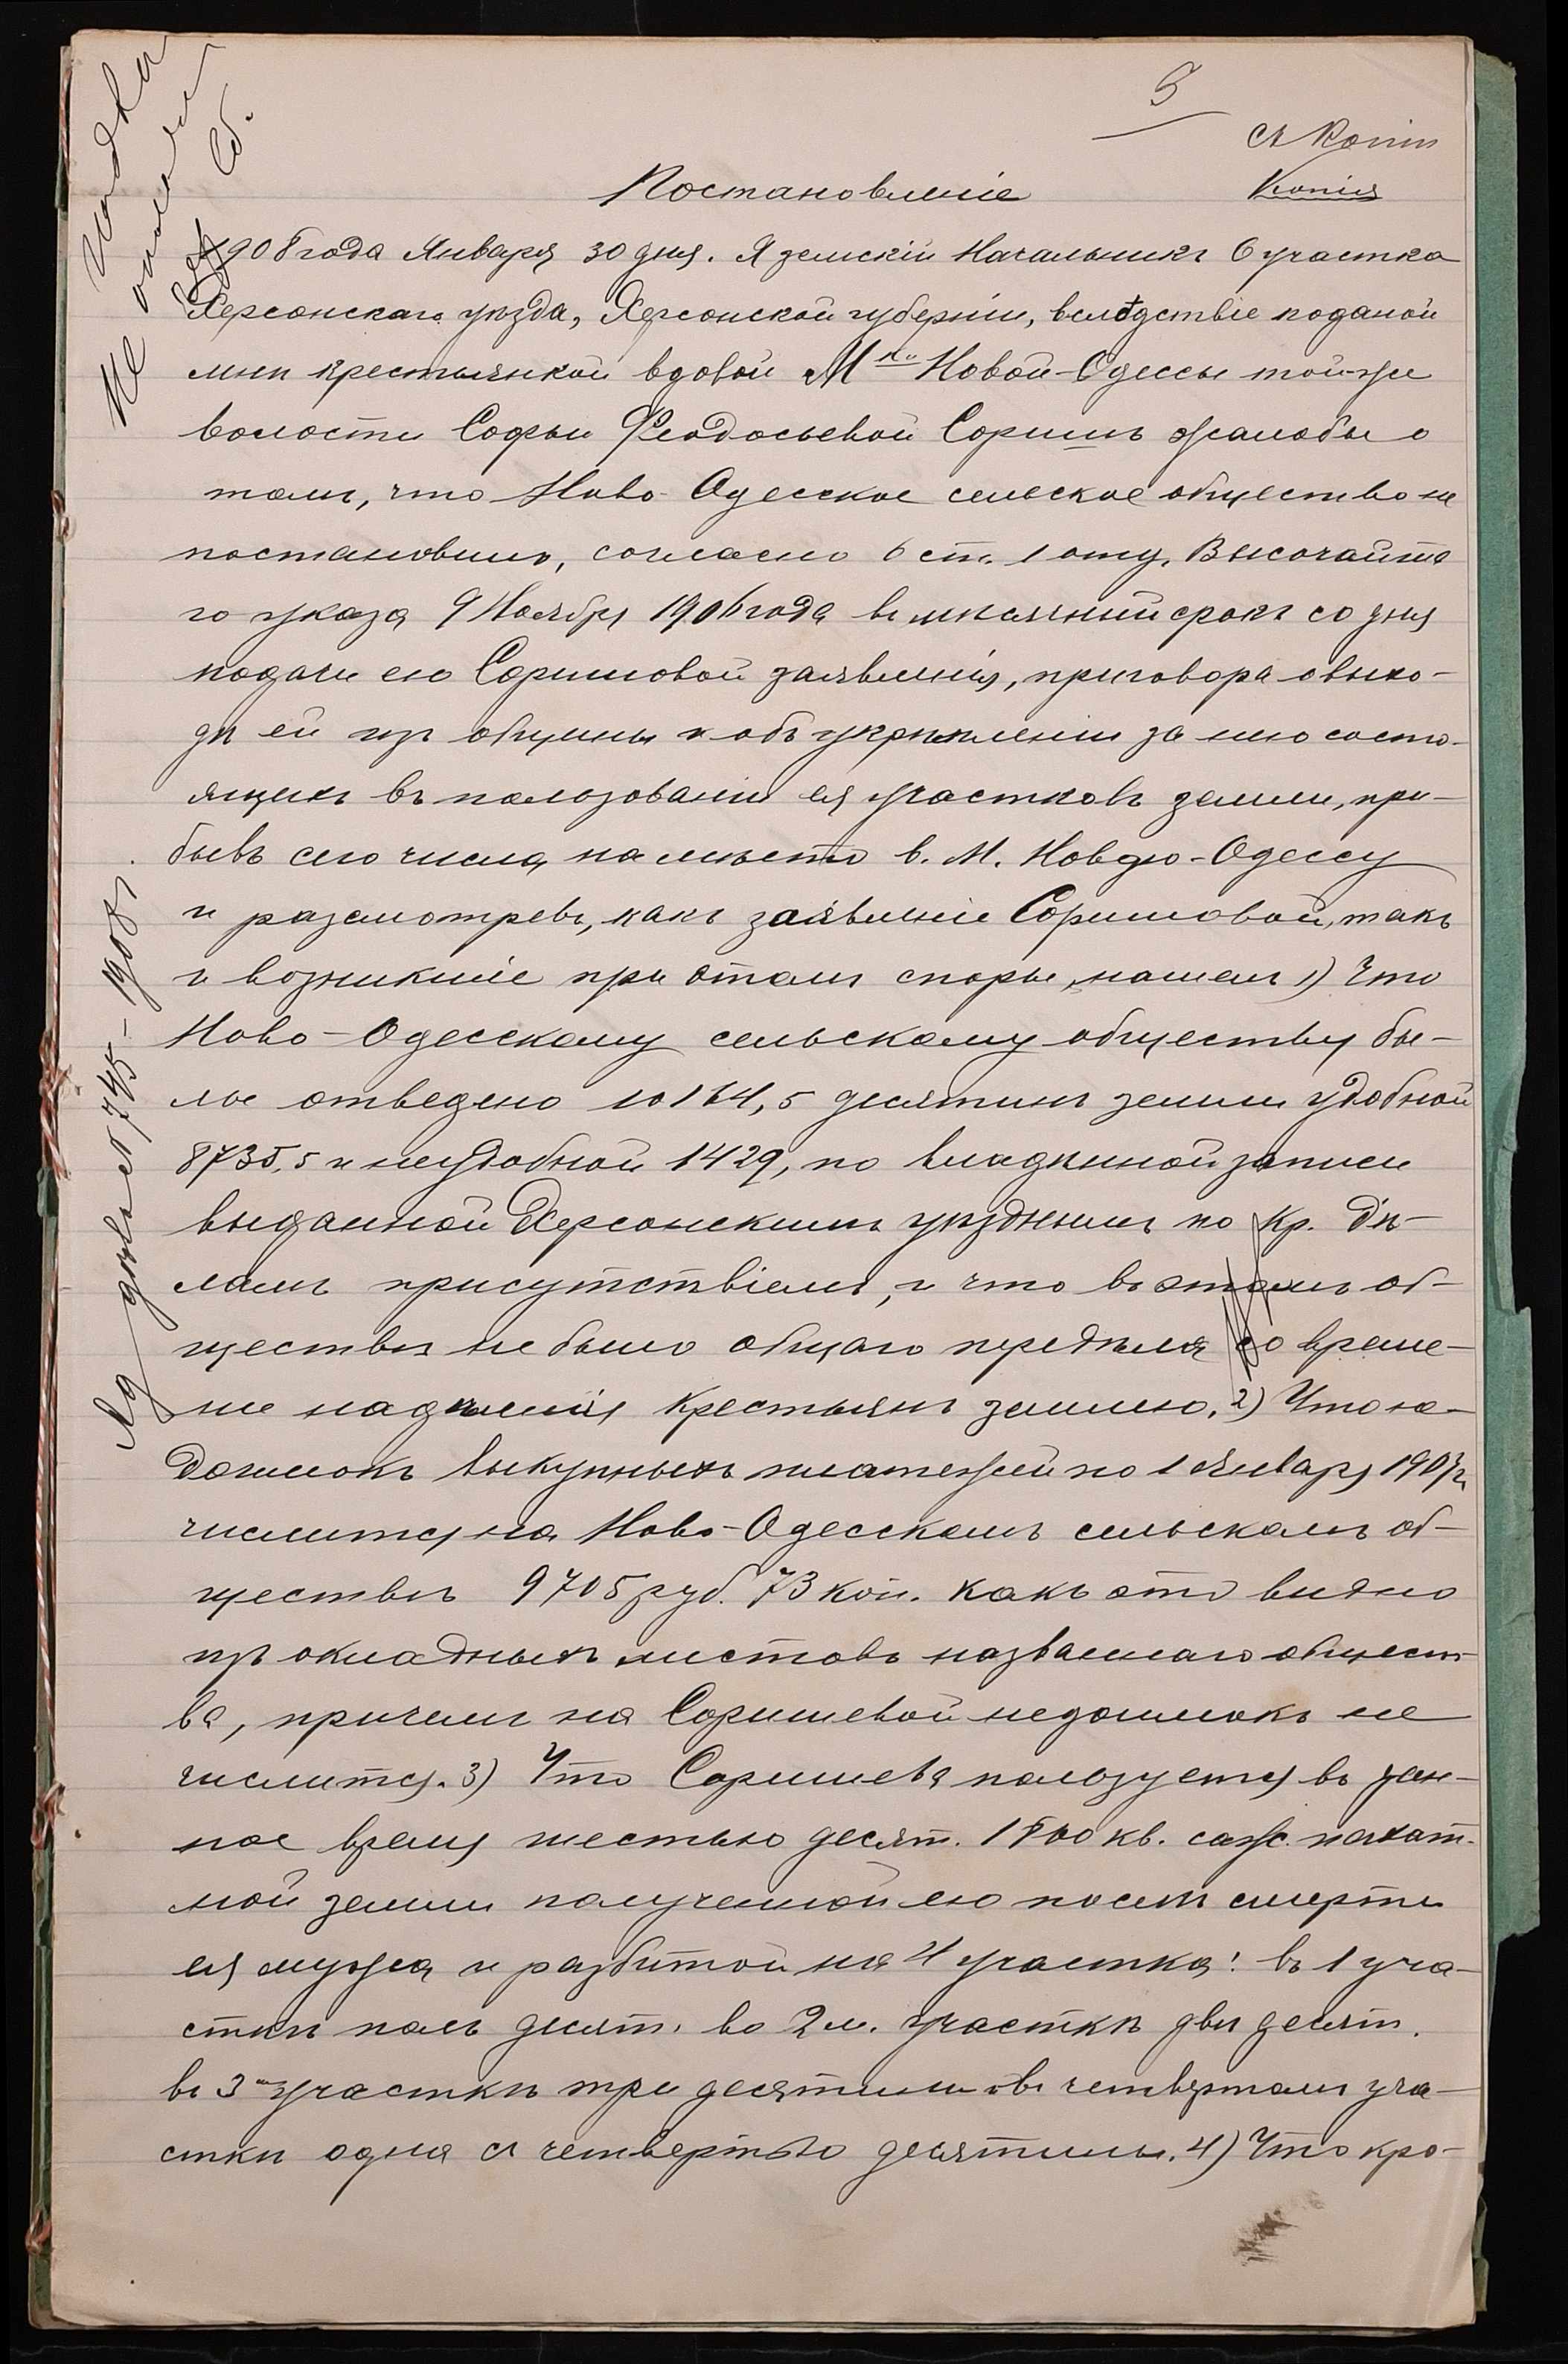 5
съ Копіи
Копія
Постановленіе
1908 года Января 30 дня. Я земскій Начальникъ 6 участка
Херсонскаго уѣзда, Херсонской губерніи, вслѣдствіе поданой
мнѣ крестьянкой вдовой М<sup>ка</sup> Новой-Одессы той-же
волости Софьи Феодосьевой Соришъ жалобы о
томъ, что Ново-Одесское сельское общество не
постановило, согласно 6 ст. 1 отд. Высочайша
го указа 9 Ноября 1906 года въ мѣсячный срокъ со дня
подачи ею Соришовой заявленія, приговора о выхо-
дѣ ей изъ общины и объ укрѣпленіи за нею состо-
ящихъ въ пользованіи ея участковъ земли, при-
бывъ сего числа на мѣсто в. М. Новую-Одессу
и разсмотревъ, какъ заявленіе Соришовой, такъ
и возникшіе при этомъ споры, нашелъ 1) Что
Ново-Одесскому сельскому обществу бы-
ло отведено 10164,5 десятинъ земли удобной
8735,5 и неудобной 1429, по владѣнной записи
выданной Херсонскимъ уѣзднымъ по кр. дѣ-
ламъ присутствіемъ, и что въ этомъ об-
ществѣ не было общаго передѣла со време-
ни надѣленія крестьянъ землею. 2) Что не-
доимокъ выкупныхъ платежей по 1 Января 1907 г.
числится на Ново-Одесскомъ сельскомъ об-
ществѣ 9705 руб. 73 коп. какъ это видно
изъ окладныхъ листовъ названнаго общест-
ва, причемъ на Соришевой недоимокъ не
числится. 3) Что Соришева пользуется въ дан-
ное время шестью десят. 1800 кв. саж. пахат-
ной земли полученной ею послѣ смерти
ея мужа и разбитой на 4 участка: въ 1 уча-
сткѣ полъ десят. во 2 м. участкѣ двѣ десят.
въ 3<sup>мъ</sup> участкѣ три десятины и въ четвертомъ уча-
сткѣ одна съ четвертью десятины. 4) Что кро-
Не
745 – 1908 г.